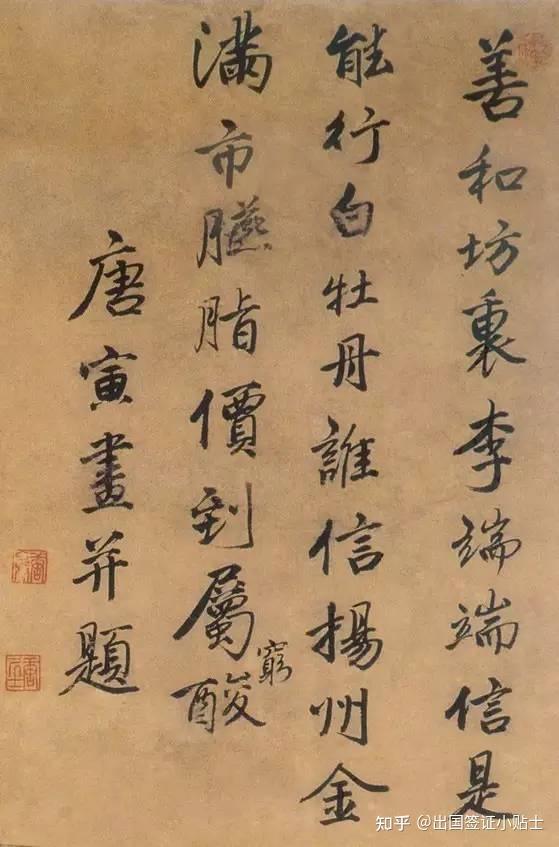 善和坊裏李端端信是
能行白牡丹誰信揚州金
滿市臙脂價到屬窮酸
唐寅畫并題
知乎 @出国签证小贴士